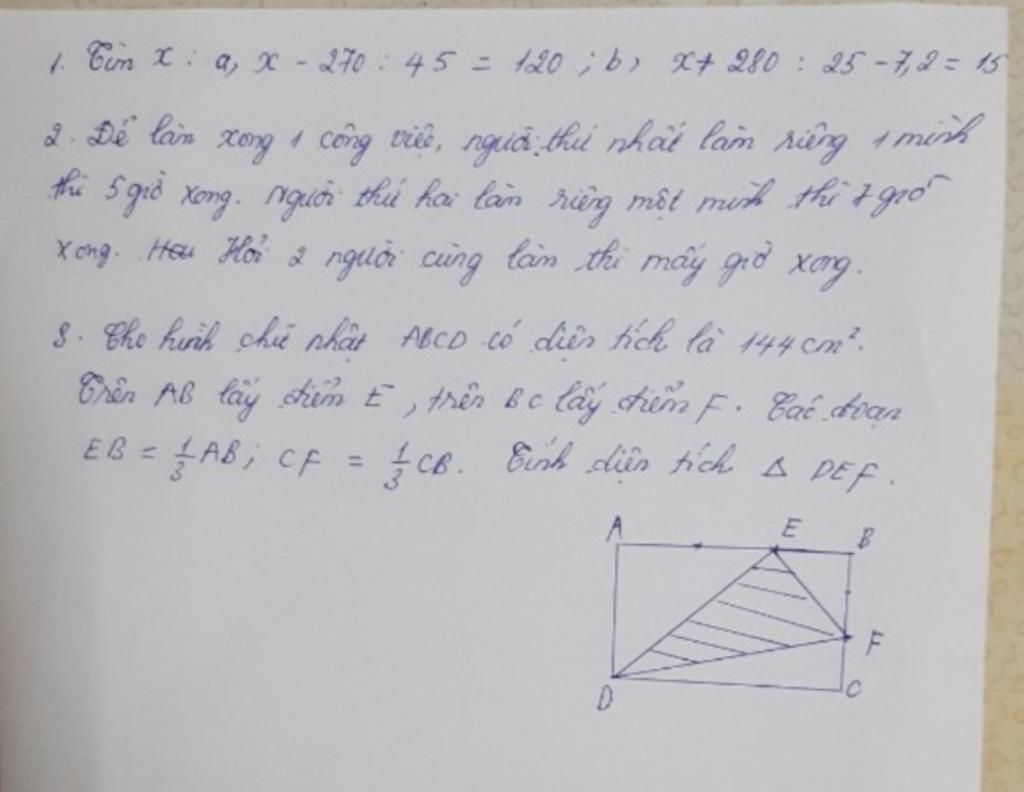 1. Tìm x : a, x - 270 : 45 = 120 ; b, x + 280 : 25 - 7,2 = 15
2. Để làm xong 1 công việc, người thứ nhất làm riêng 1 mình
thì 5 giờ xong. Người thứ hai làm riêng một mình thì 7 giờ
xong. Hỏi 2 người cùng làm thì mấy giờ xong.
3. Cho hình chữ nhật ABCD có diện tích là 144 cm².
Trên AB lấy điểm E, trên BC lấy điểm F. Các đoạn
EB = 1/3 AB; CF = 1/3 CB. Tính diện tích Δ DEF.
A E B
F
D C